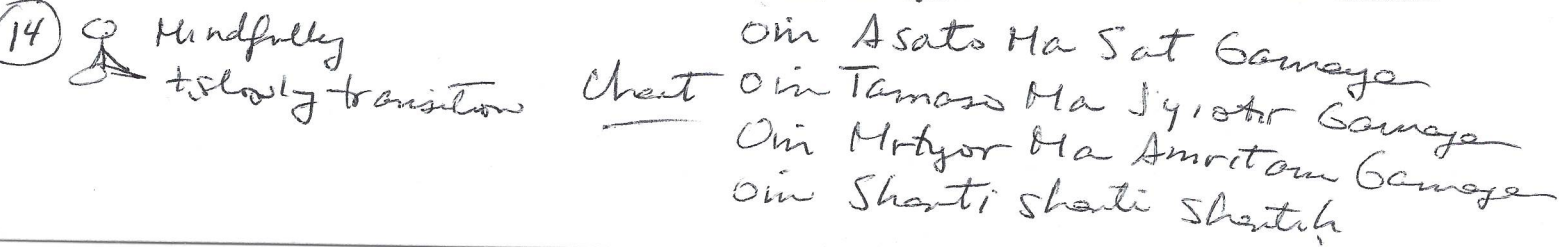 14 Mindfully
+ slowly transition
Chant
Om Asato Ma Sat Gamaya
Om Tamaso Ma Jyiotir Gamaya
Om Mrtyor Ma Amritam Gamaya
Om Shanti Shanti Shantih